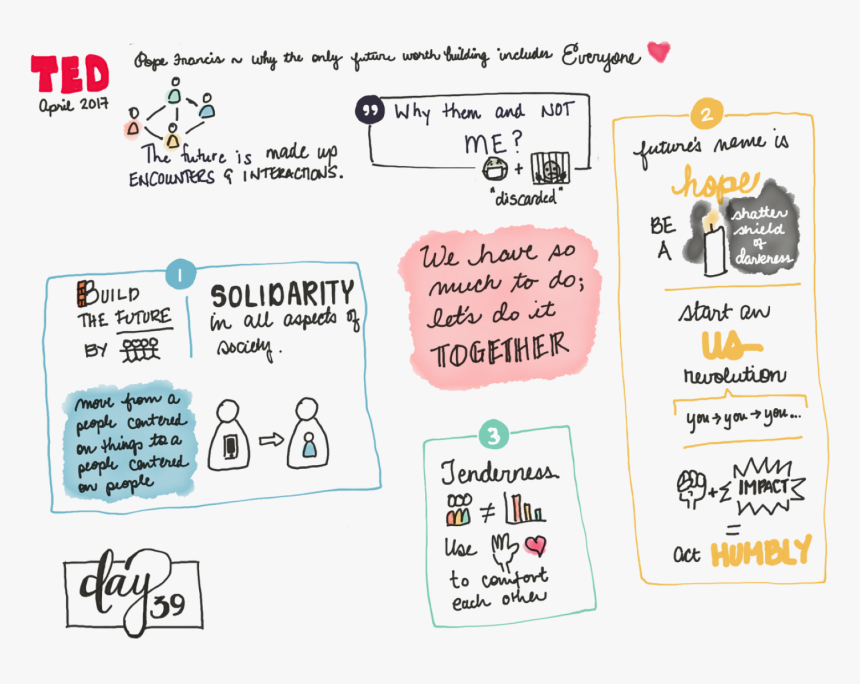 TED
April 2017
Pope Francis ~ why the only future worth building includes Everyone
The future is made up
ENCOUNTERS & INTERACTIONS.
Why them and NOT
ME?
+
"discarded"
1
BUILD
THE FUTURE
BY
SOLIDARITY
in all aspects of
society.
move from a
people centered
on things to a
people centered
on people
We have so
much to do;
let's do it
TOGETHER
2
future's name is
hope
BE
A
shatter
shield
of
darkness
start an
US
revolution
you → you → you...
+ IMPACT
=
act HUMBLY
3
Tenderness
≠
Use
to comfort
each other
day
39